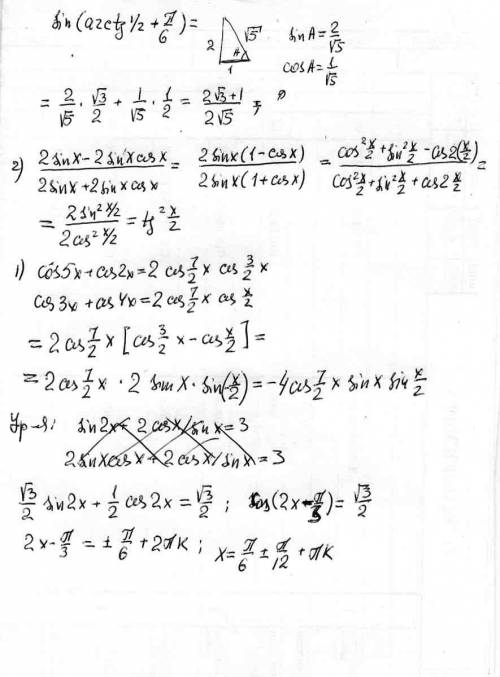 sin(arctg 1/2 + π/6) =
2 √5 A 1
sin A = 2/√5
cos A = 1/√5
= 2/√5 · √3/2 + 1/√5 · 1/2 = (2√3+1)/(2√5) ;
2) (2 sin x - 2 sin x cos x)/(2 sin x + 2 sin x cos x) = (2 sin x (1 - cos x))/(2 sin x (1 + cos x)) = (cos² x/2 + sin² x/2 - cos 2(x/2))/(cos² x/2 + sin² x/2 + cos 2 x/2) =
= (2 sin² x/2)/(2 cos² x/2) = tg² x/2
1) cos 5x + cos 2x = 2 cos 7/2 x cos 3/2 x
cos 3x + cos 4x = 2 cos 7/2 x cos x/2
= 2 cos 7/2 x [cos 3/2 x - cos x/2] =
= 2 cos 7/2 x · 2 sin x · sin(-x/2) = -4 cos 7/2 x sin x sin x/2
Ур-я: sin 2x + 2 cos x / sin x = 3
2 sin x cos x + 2 cos x / sin x = 3
√3/2 sin 2x + 1/2 cos 2x = √3/2 ; cos(2x - π/3) = √3/2
2x - π/3 = ± π/6 + 2πK ; x = π/6 ± π/12 + πK